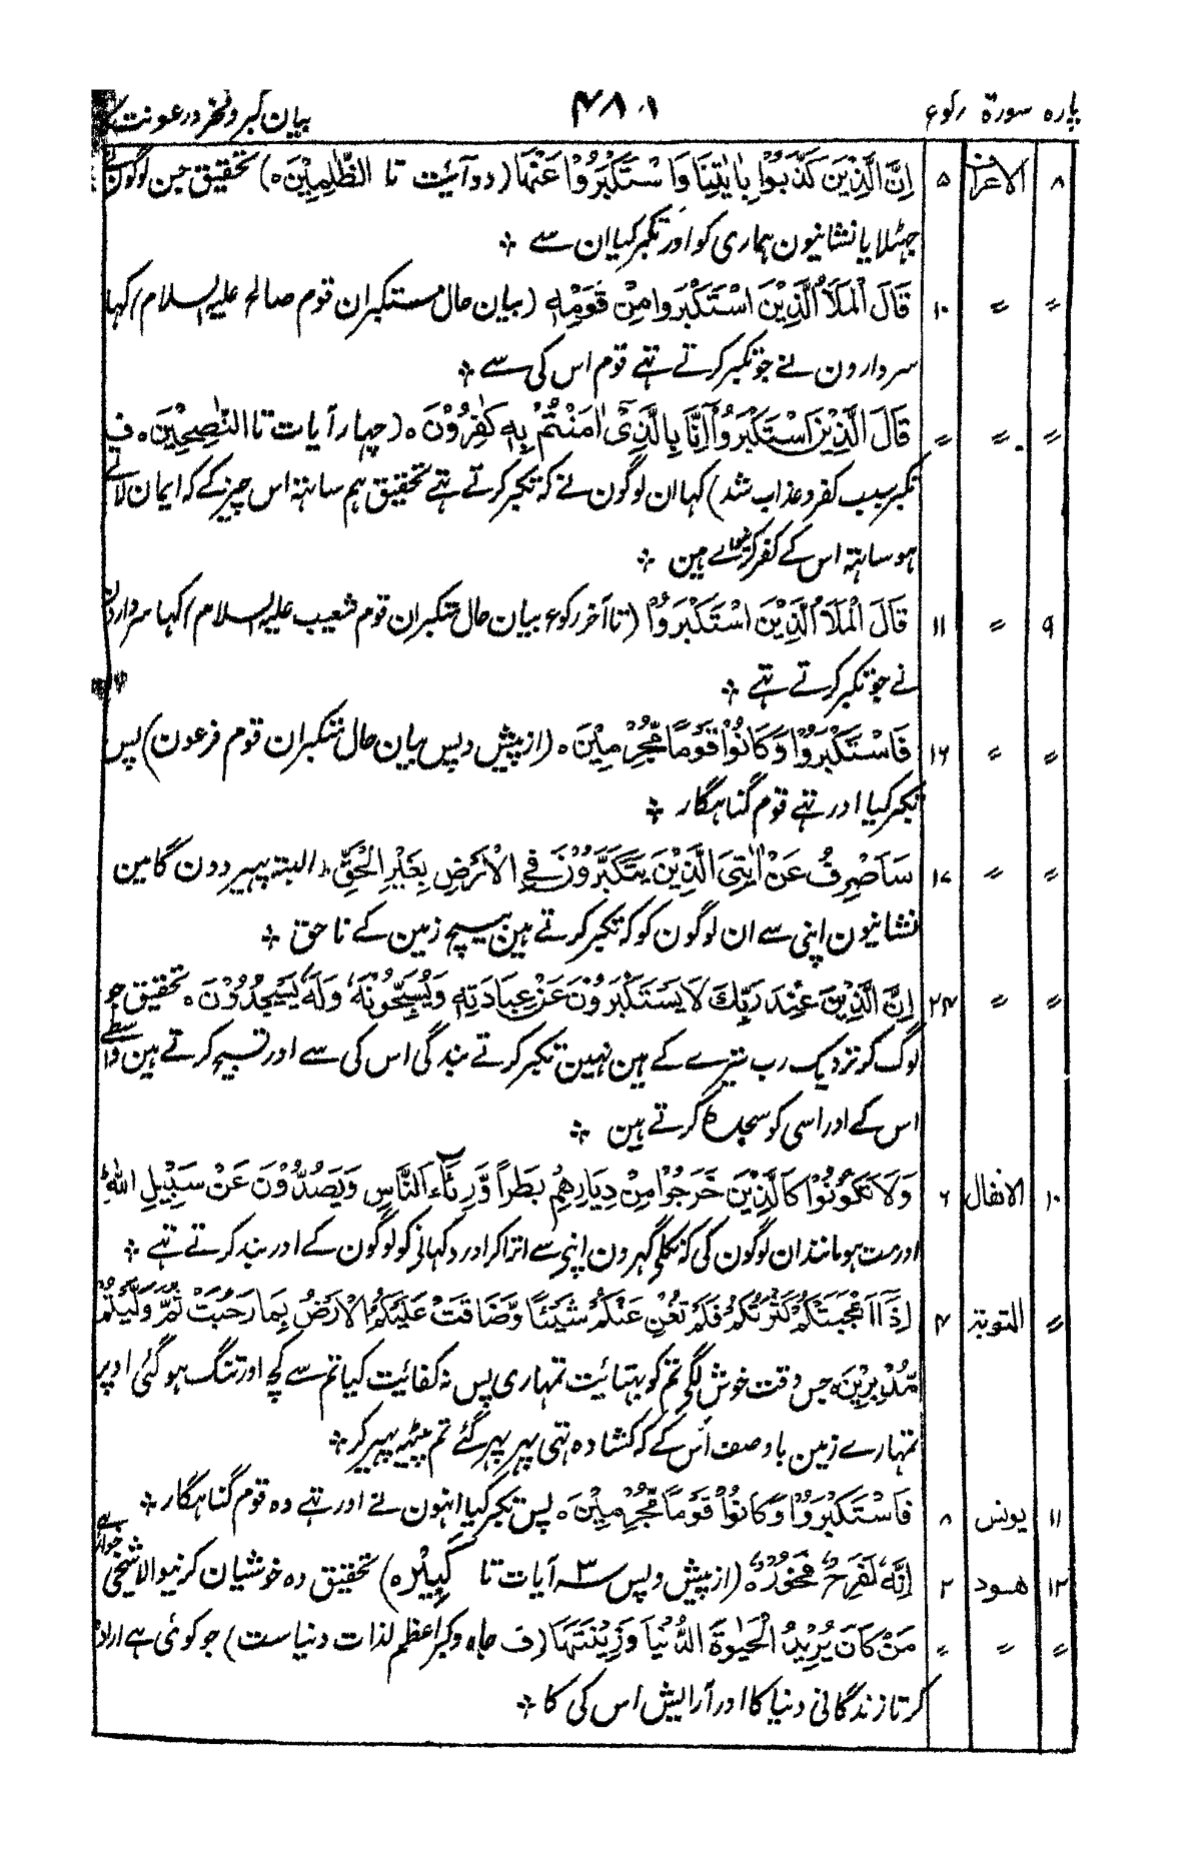 پارہ سورۃ رکوع ۴۸۰۱ بیان کبر و فخر و رعونت
۸ الاعراف ۵ اِنَّ الَّذِیْنَ کَذَّبُوْا بِاٰیٰتِنَا وَاسْتَکْبَرُوْا عَنْهَا (دو آئیت تا الظّٰلِمِیْنَ ہ) تحقیق جن لوگون نے
جہٹلایا نشانیون ہماری کو اور تکبر کیا ان سے ※
〃 〃 ۱۰ قَالَ الْمَلَاُ الَّذِیْنَ اسْتَکْبَرُوا مِنْ قَوْمِهٖ (بیان حال مستکبران قوم صالح علیہ السلام) کہا
سردارون نے جو تکبر کرتے تہے قوم اس کی سے ※
〃 〃 〃 قَالَ الَّذِیْنَ اسْتَکْبَرُوْۤا اِنَّا بِالَّذِیْۤ اٰمَنْتُمْ بِهٖ کٰفِرُوْنَ ہ (چہار آیات تا النّٰصِحِیْنَ ہ ف
تکبر سبب کفر و عذاب شد) کہا ان لوگون نے کہ تکبر کرتے تہے تحقیق ہم ساتہ اس چیز کے کہ ایمان لائے
ہو ساتہ اس کے کفر کرنیوالے ہین ※
۹ 〃 ۱۱ قَالَ الْمَلَاُ الَّذِیْنَ اسْتَکْبَرُوْا (تا آخر رکوع بیان حال متکبران قوم شعیب علیہ السلام) کہا سردارون
نے جو تکبر کرتے تہے ※
〃 〃 ۱۶ فَاسْتَکْبَرُوْا وَکَانُوْا قَوْمًا مُّجْرِمِیْنَ ہ (از پیش و پس بیان حال متکبران قوم فرعون) پس
تکبر کیا اور تہے قوم گناہگار ※
〃 〃 ۱۷ سَاَصْرِفُ عَنْ اٰیٰتِیَ الَّذِیْنَ یَتَکَبَّرُوْنَ فِی الْاَرْضِ بِغَیْرِ الْحَقِّ ط البتہ پہیر دون گا مین
نشانیون اپنی سے ان لوگون کو کہ تکبر کرتے ہین بیچ زمین کے ناحق ※
〃 〃 ۲۴ اِنَّ الَّذِیْنَ عِنْدَ رَبِّکَ لَا یَسْتَکْبِرُوْنَ عَنْ عِبَادَتِهٖ وَیُسَبِّحُوْنَهٗ وَلَهٗ یَسْجُدُوْنَ ہ تحقیق جو
لوگ کو نزدیک رب تیرے کے ہین نہین تکبر کرتے بندگی اس کی سے اور تسبیح کرتے ہین واسطے
اس کے اور اسی کو سجدہ کرتے ہین ※
۱۰ الانفال ۶ وَلَا تَکُوْنُوْا کَالَّذِیْنَ خَرَجُوْا مِنْ دِیَارِهِمْ بَطَرًا وَّرِئَآءَ النَّاسِ وَیَصُدُّوْنَ عَنْ سَبِیْلِ اللّٰهِ ط
اور مت ہو مانند ان لوگون کی کہ نکلے گہرون اپنی سے اترا کر اور دکہانی کو لوگون کے اور بند کرتے تہے ※
〃 التوبۃ ۴ اِذْ اَعْجَبَتْکُمْ کَثْرَتُکُمْ فَلَمْ تُغْنِ عَنْکُمْ شَیْئًا وَّضَاقَتْ عَلَیْکُمُ الْاَرْضُ بِمَا رَحُبَتْ ثُمَّ وَلَّیْتُمْ
مُّدْبِرِیْنَ ہ جس وقت خوش لگی تم کو بہتائیت تمہاری پس نہ کفائیت کیا تم سے کچہ اور تنگ ہو گئی اوپر
تمہارے زمین باوصف اس کے کہ کشادہ تہی پہر پہر گئے تم پیٹہ پہیر کر ※
۱۱ یونس ۸ فَاسْتَکْبَرُوْا وَکَانُوْا قَوْمًا مُّجْرِمِیْنَ ہ پس تکبر کیا انہون نے اور تہے وہ قوم گناہگار ※
۱۲ ھود ۲ اِنَّهٗ لَفَرِحٌ فَخُوْرٌ ہ (از پیش و پس ۳ آیات تا کَبِیْرٌ ہ) تحقیق وہ خوشیان کرنیوالا شیخی خوار ہے
〃 〃 〃 مَنْ کَانَ یُرِیْدُ الْحَیٰوةَ الدُّنْیَا وَزِیْنَتَهَا (ف جاہ و کبر اعظم لذات دنیاست) جو کوئی ہے ارادہ
کرتا زندگانی دنیا کا اور آرایش اس کی کا ※